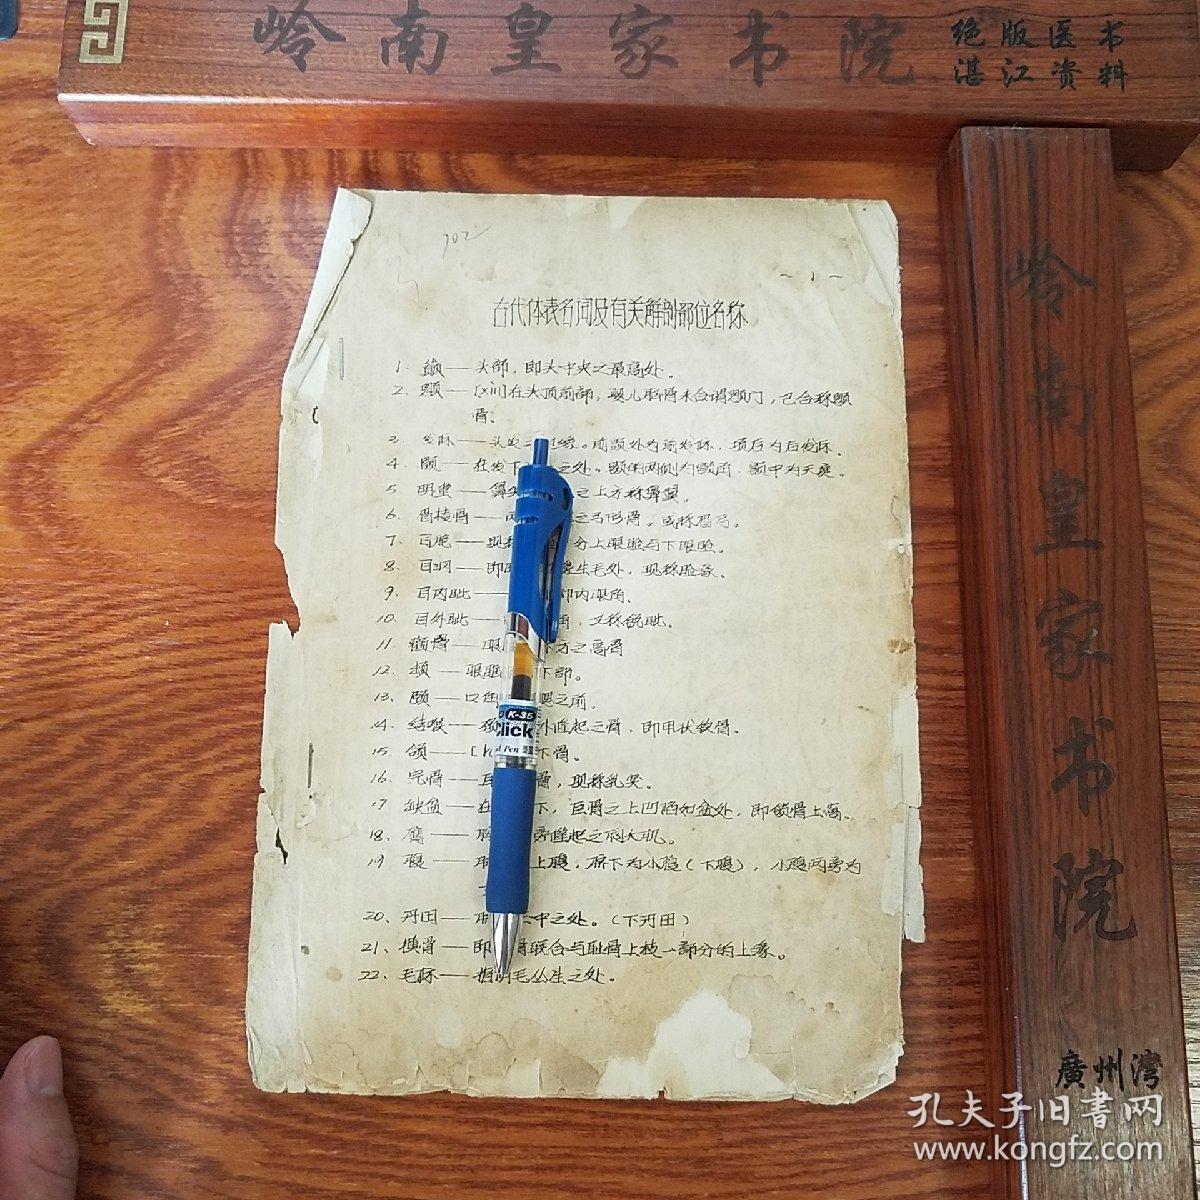 岭南皇家书院
绝版医书
湛江资料
岭南皇家书院
廣州灣
702
~1~
古代体表名词及有关解剖部位名称
1. 头部，即头中央之最高处。
2. [xin]在头顶前部，婴儿脑骨未合谓囟门，已合称颅
骨。
3. 发际——头发 缘。前额处为前发际，项后为后发际。
4. 额——在发下 之处。额的两侧为额角，额中为天庭。
5. 明堂——鼻 之上方称鼻
6. 骨——两 之弓形骨，或称
7. 目胞——现 分上眼睑与下眼睑。
8. 目纲——即 生毛处，现称睑缘。
9. 目内眦—— 即内眼角。
10. 目外眦—— 角，又称锐眦。
11. 颧骨——眼 下方之高骨
12. 眼眶 下部。
13. 颐——口角 腮之前。
14. 结喉——颈 外隆起之骨，即甲状软骨。
15. 颌——[h 下骨。
16. 完骨——耳 骨，现称乳突。
17. 缺盆——在 下，巨骨之上凹陷如盆处，即锁骨上窝。
18. 膺——胸 旁隆起之胸大肌。
19. 腹—— 上腹，脐下为小腹（下腹），小腹两旁为
20. 丹田—— 中之处。（下丹田）
21. 横骨——即 骨联合与耻骨上枝一部分的上缘。
22. 毛际——指阴毛丛生之处。
K-35
Click
Pen
孔夫子旧書网
www.kongfz.com